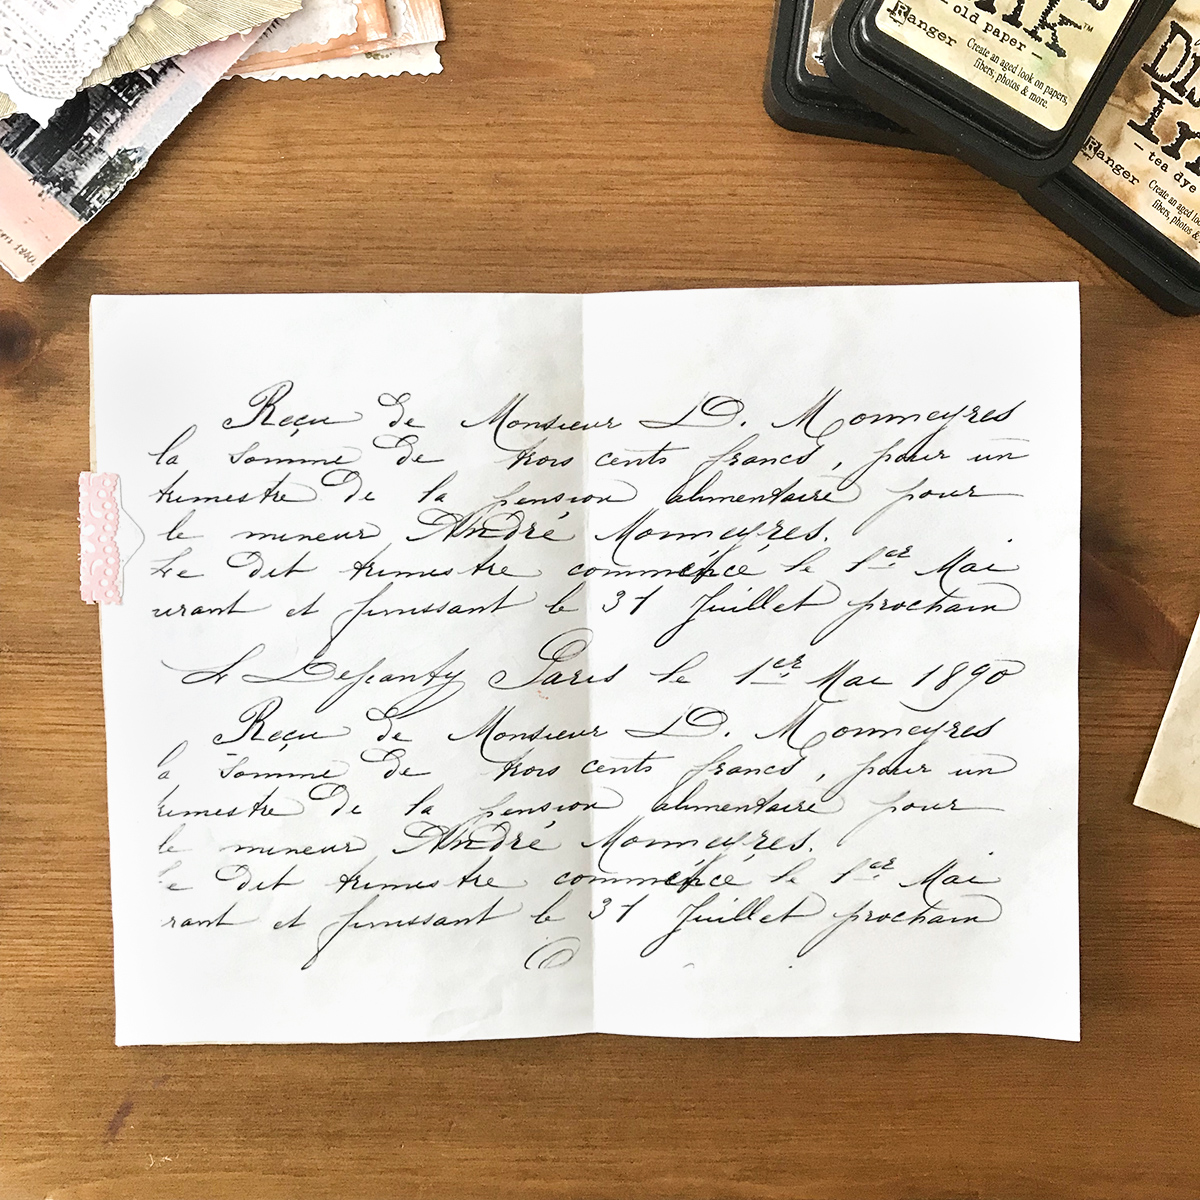 old paper
Ranger
Create an aged look on papers,
fibers, photos & more.
tea dye
Ranger
Create an aged
fibers, photos &
Reçu de Monsieur D. Monneyres
la somme de trois cents francs, pour un
trimestre de la pension alimentaire pour
le mineur André Monneyres.
Le dit trimestre commencé le 1er Mai
urant et finissant le 31 Juillet prochain
Le Paris le 1er Mai 1890
Reçu de Monsieur D. Monneyres
la somme de trois cents francs, pour un
rimestre de la pension alimentaire pour
le mineur André Monneyres.
e dit trimestre commencé le 1er Mai
rant et finissant le 31 Juillet prochain